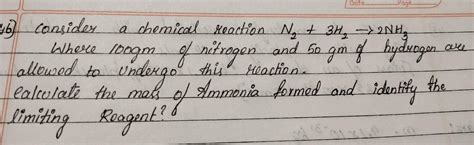 Date Page
46) consider a chemical reaction N₂ + 3H₂ → 2NH₃
Where 100gm of nitrogen and 50 gm of hydrogen are
allowed to undergo this reaction.
Calculate the mass of Ammonia formed and identify the
limiting Reagent?